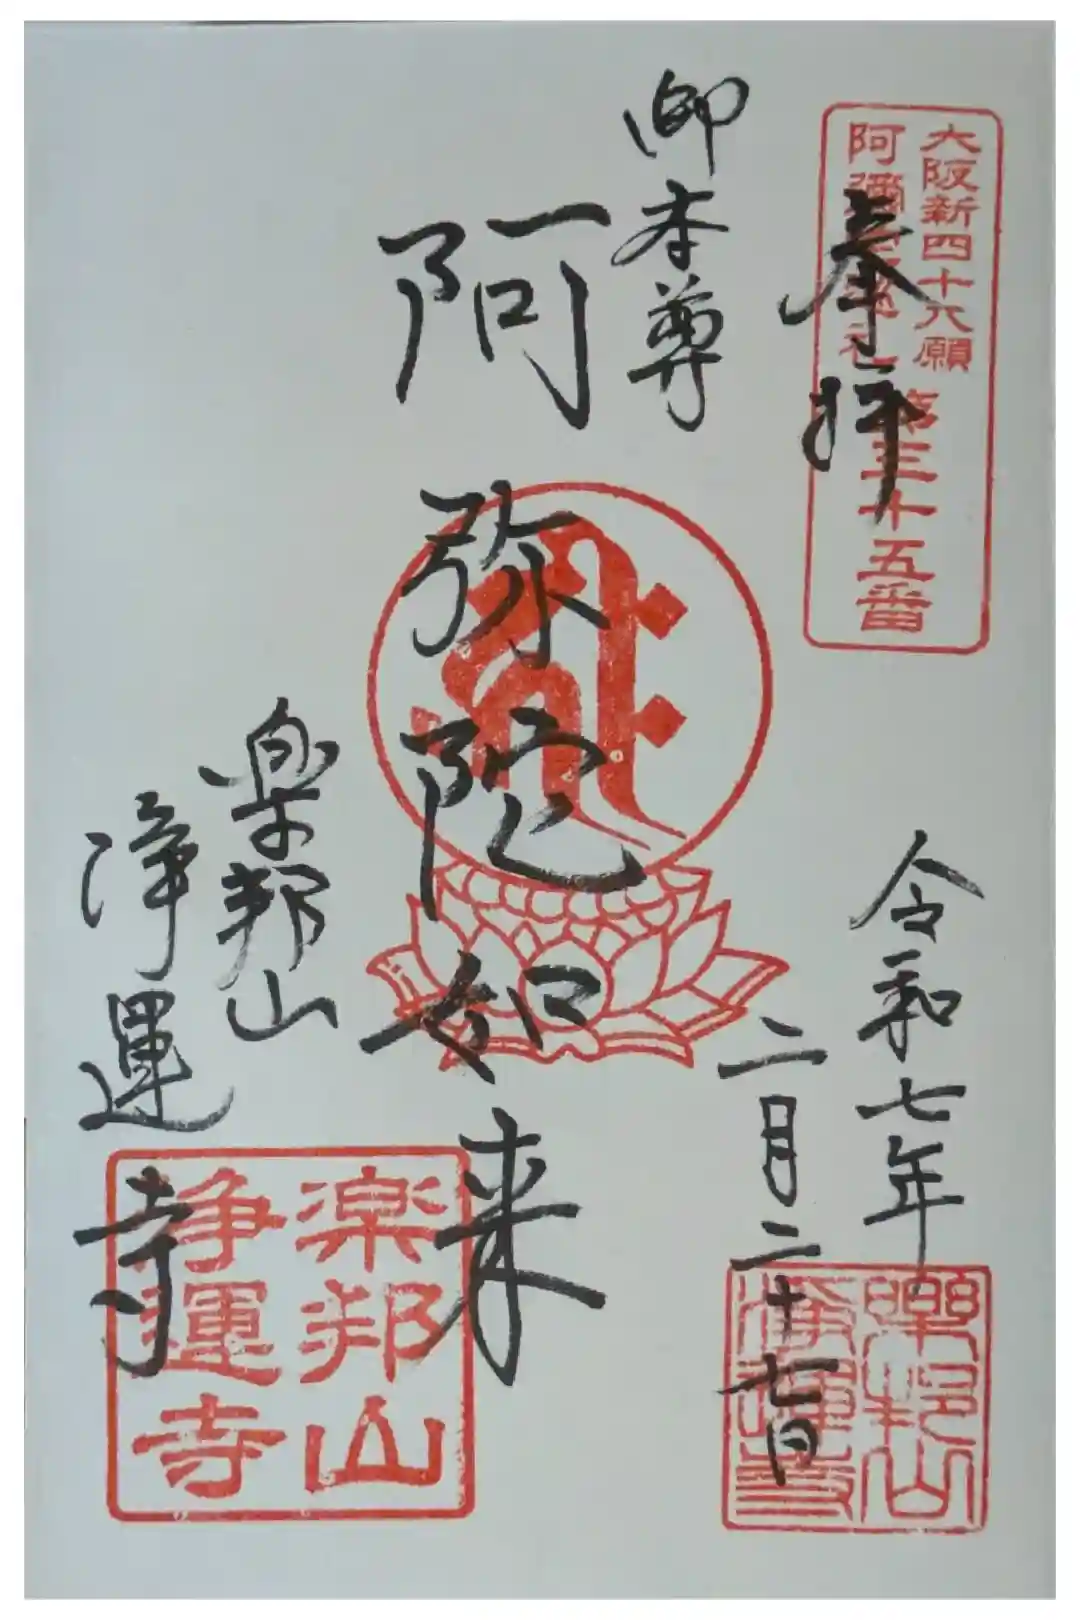 大阪新四十八願
阿彌陀巡礼 第三十五番
奉拝
令和七年
二月二十七日
樂邦山
浄運寺
御本尊
阿弥陀如来
楽邦山
浄運寺
楽邦山
浄運寺